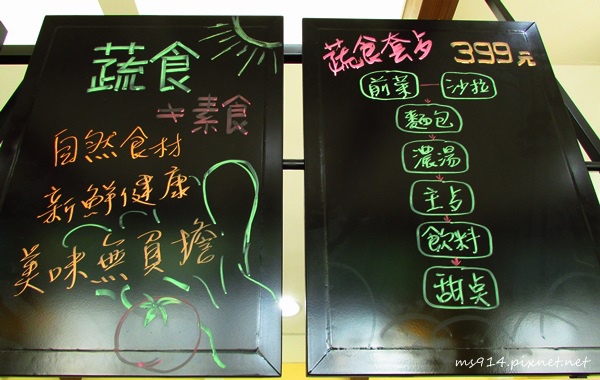 蔬食
≠素食
自然食材
新鮮健康
美味無負擔
蔬食套点 399元
前菜 沙拉
麵包
濃湯
主点
飲料
甜点
ms914.pixnet.net